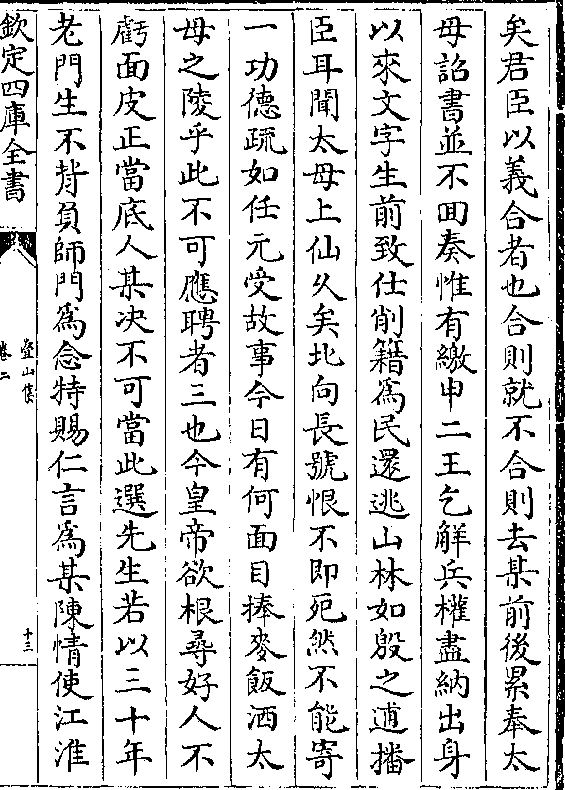 矣君臣以義合者也合則就不合則去某前後累奉太
母詔書並不回奏惟有繳申二王乞解兵權盡納出身
以來文字生前致仕削籍為民還逃山林如殷之逋播
臣耳聞太母上仙久矣北向長號恨不即死然不能寄
一功德疏如任元受故事今日有何面目捧麥飯洒太
母之陵乎此不可應聘者三也今皇帝欲根尋好人不
虧面皮正當底人某決不可當此選先生若以三十年
老門生不背負師門為念特賜仁言為某陳情使江淮
欽定四庫全書
疊山集
卷二
十三